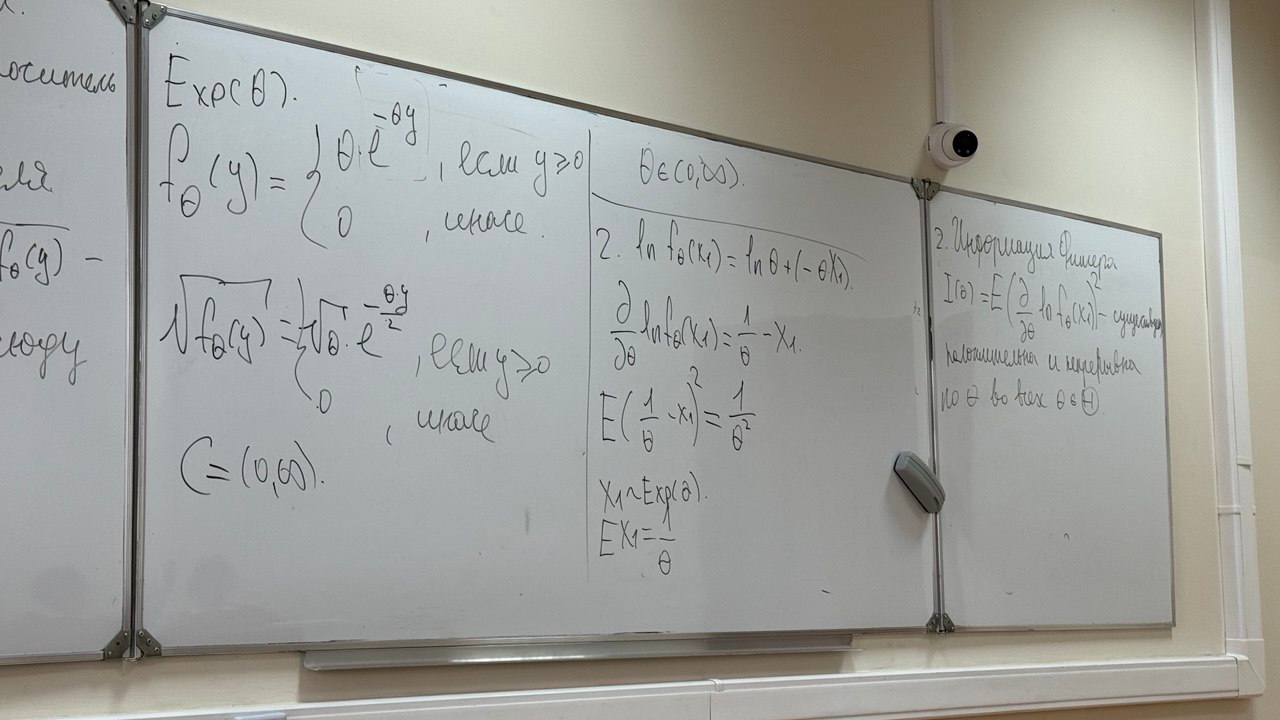 Exp(θ).
f_θ(y) = { θ·e^{-θy}, если y ≥ 0
0, иначе.
√f_θ(y) = { √θ · e^{-θy/2}, если y ≥ 0
0, иначе
C = (0,∞).
θ ∈ (0,∞).
2. ln f_θ(x₁) = ln θ + (-θX₁).
∂/∂θ ln f_θ(x₁) = 1/θ - X₁.
E(1/θ - x₁)² = 1/θ²
X₁ ~ Exp(θ).
EX₁ = 1/θ
2. Информация Фишера
I(θ) = E(∂/∂θ ln f_θ(x₁))² - существует,
положительна и непрерывна
по θ во всех θ ∈ Θ.
f_θ(y) –